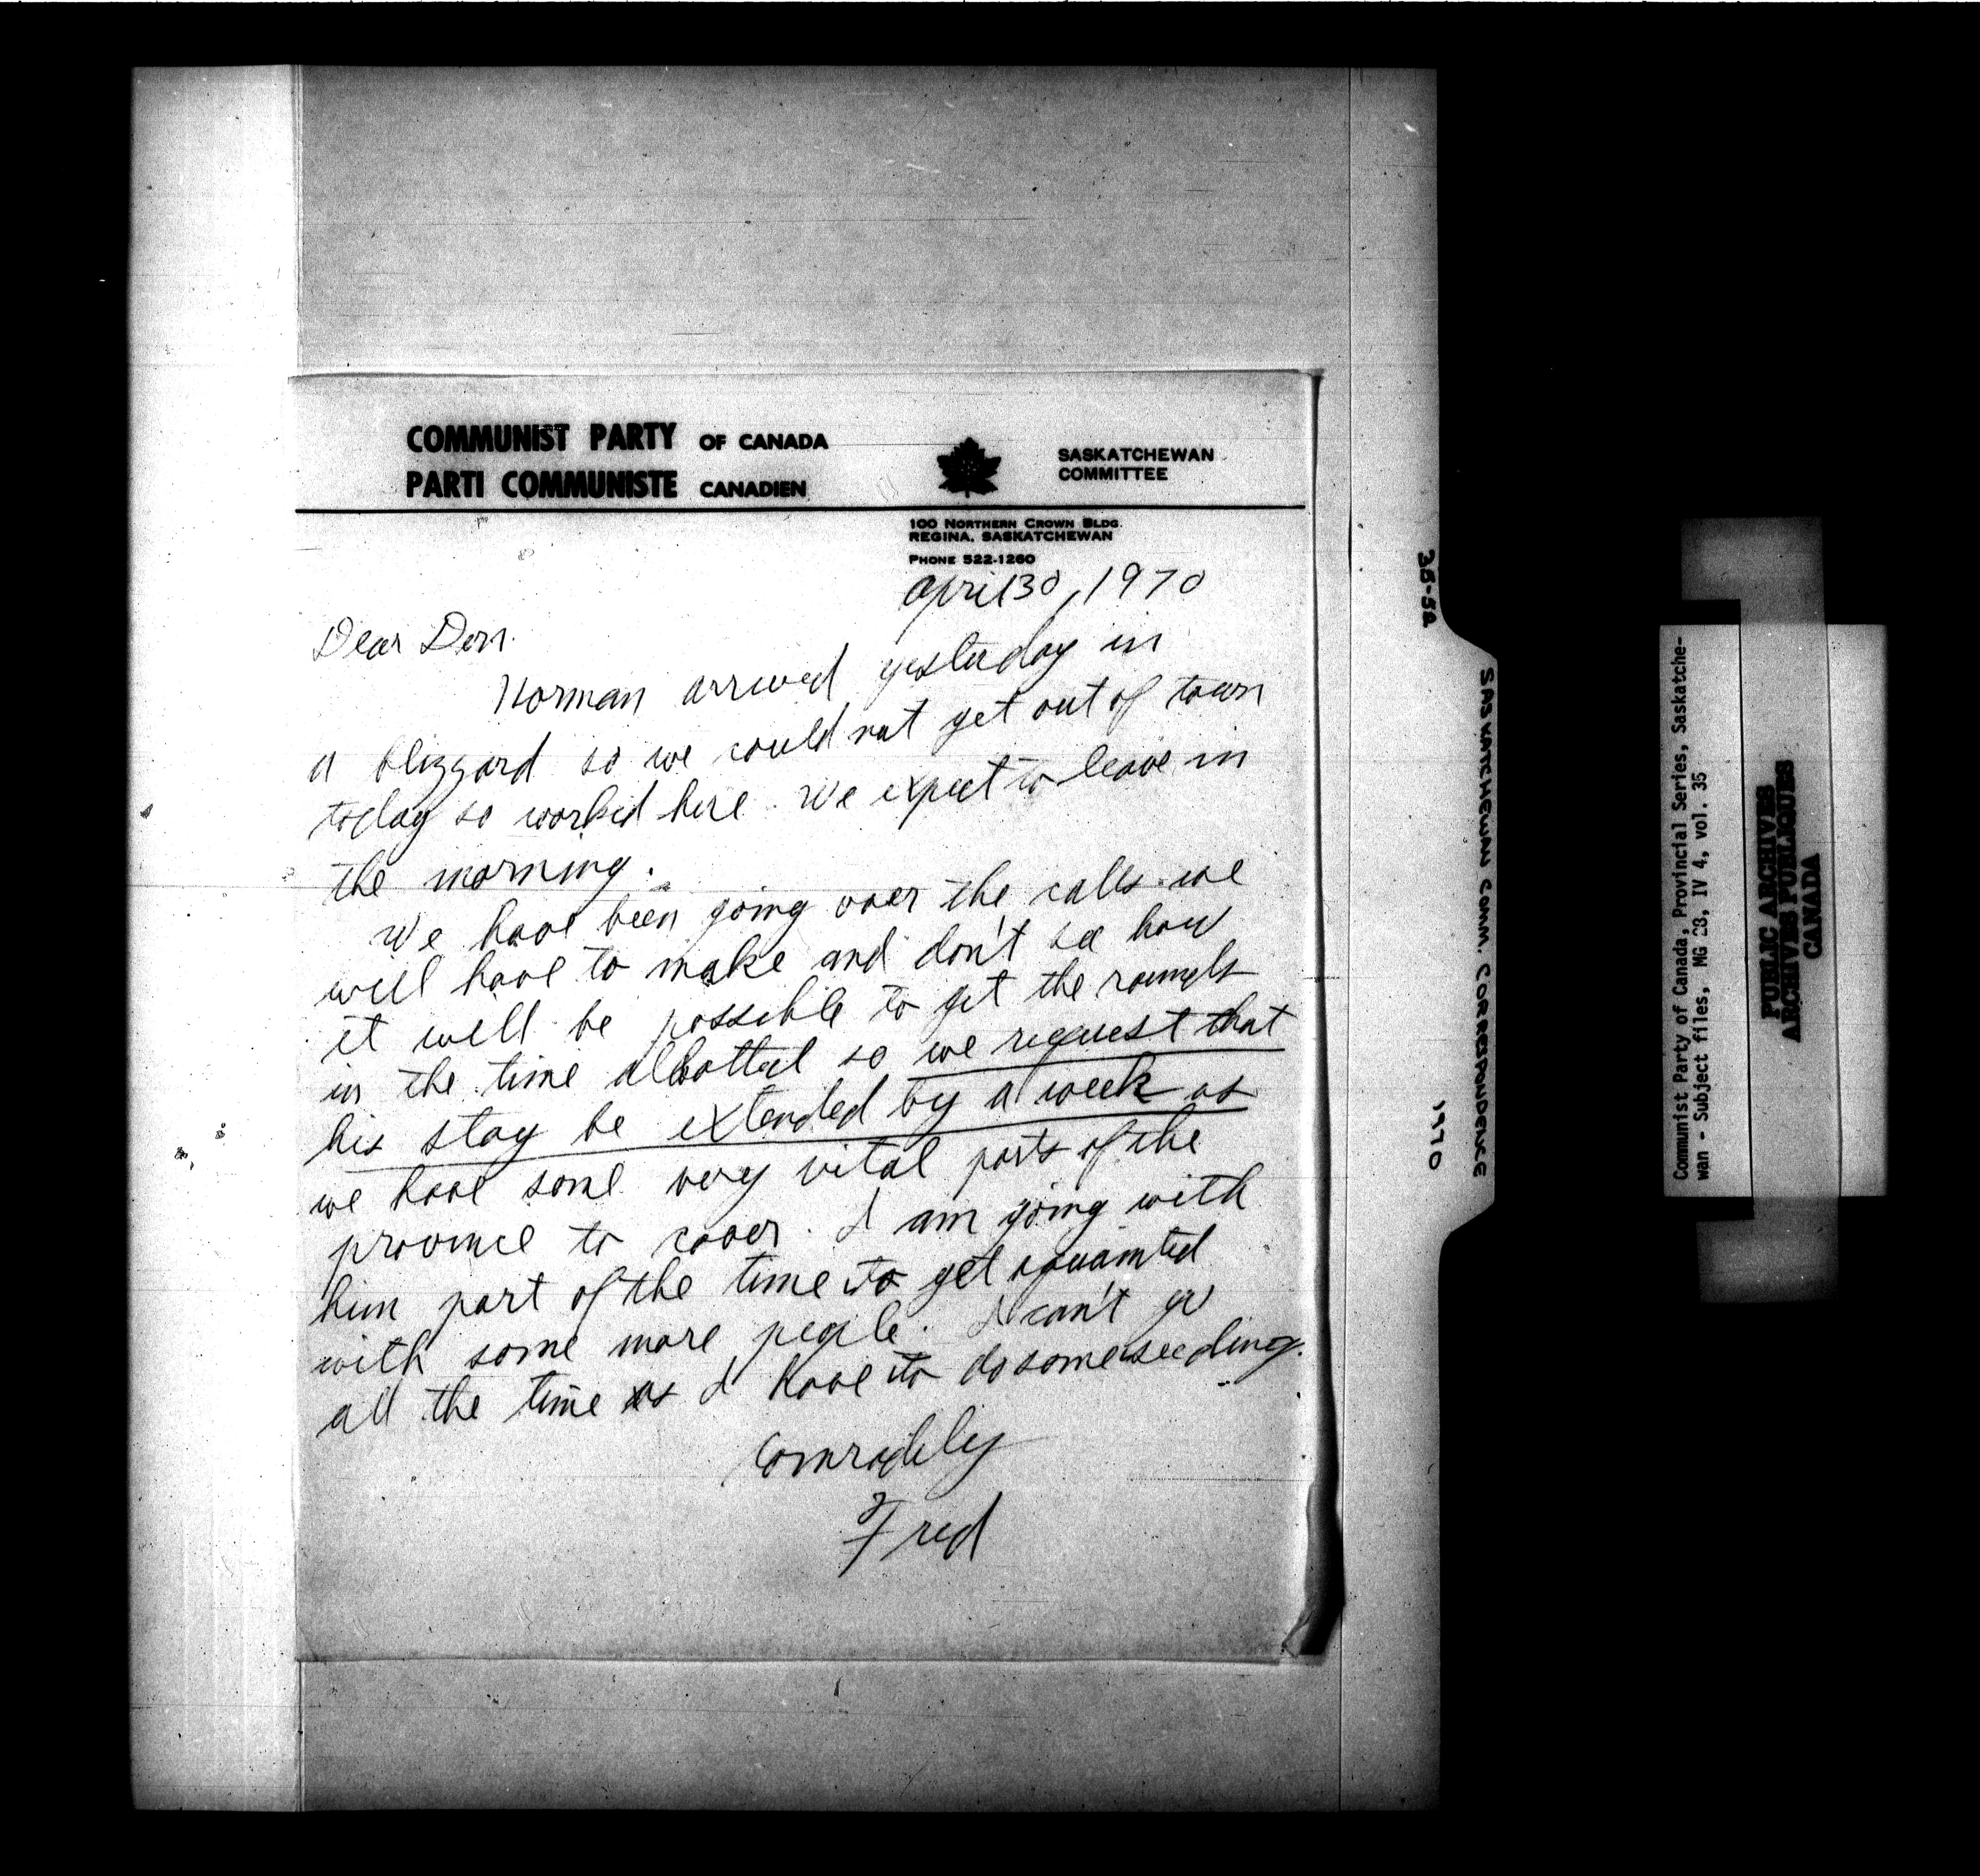 COMMUNIST PARTY OF CANADA
PARTI COMMUNISTE CANADIEN
SASKATCHEWAN
COMMITTEE
100 NORTHERN CROWN BLDG.
REGINA, SASKATCHEWAN
PHONE 522-1260
April 30, 1970
Dear Don.
Norman arrived yesterday in
a blizzard so we could not get out of town
today so worked here. We expect to leave in
the morning.
We have been going over the calls we
will have to make and don't see how
it will be possible to get the rounds
in the time allotted so we request that
his stay be extended by a week as
we have some very vital parts of the
province to cover. I am going with
him part of the time to get aquainted
with some more people. I can't go
all the time as I have to do some seeding.
Comradely
Fred
35-52
SASKATCHEWAN COMM. CORRESPONDENCE
1970
Communist Party of Canada, Provincial Series, Saskatche-
wan - Subject files, MG 28, IV 4, vol. 35
PUBLIC ARCHIVES
ARCHIVES PUBLIQUES
CANADA